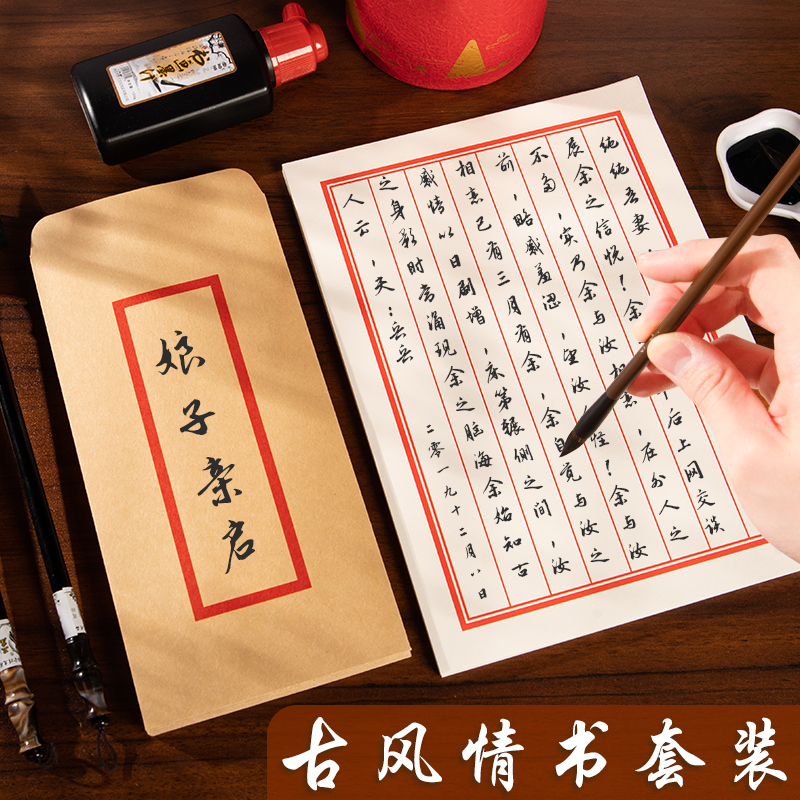 古风情书套装
娘子亲启
纯纯吾妻,余
展余之信悦!余 后上网交谈
不多,实乃余与汝相悉,在外人之
前,略感羞涩,望汝 怪!余与汝
相悉已有三月有余,余自觉与汝之
感情以日剧增,床第辗侧之间,汝
之身影时常涌现余之脑海余始知古
人云,夫:兵兵
二零一九十二月八日